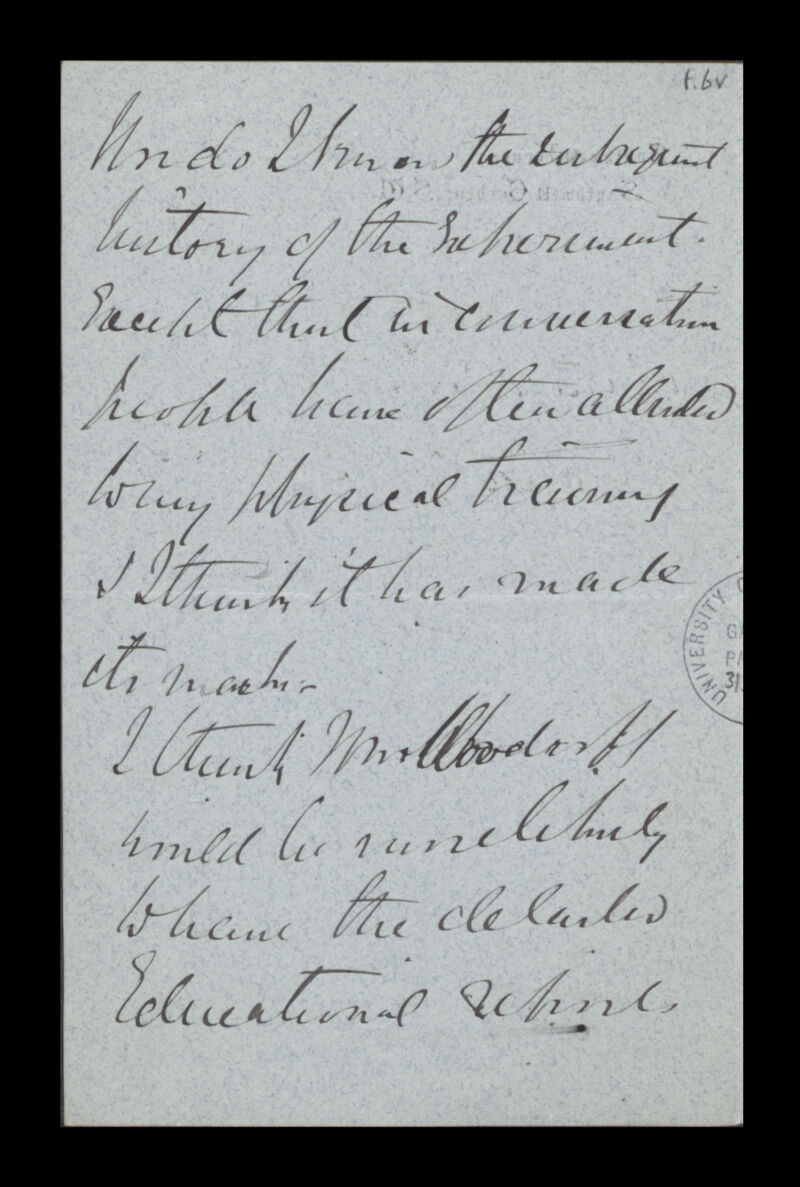 f.6v
Nor do I know the subsequent
history of the Experiment.
Except that in conversation
people have often alluded
to my physical training
& I think it has made
its mark -
I think Mr Woodorff
would be more likely
to have the detailed
Educational reports
UNIVERSITY